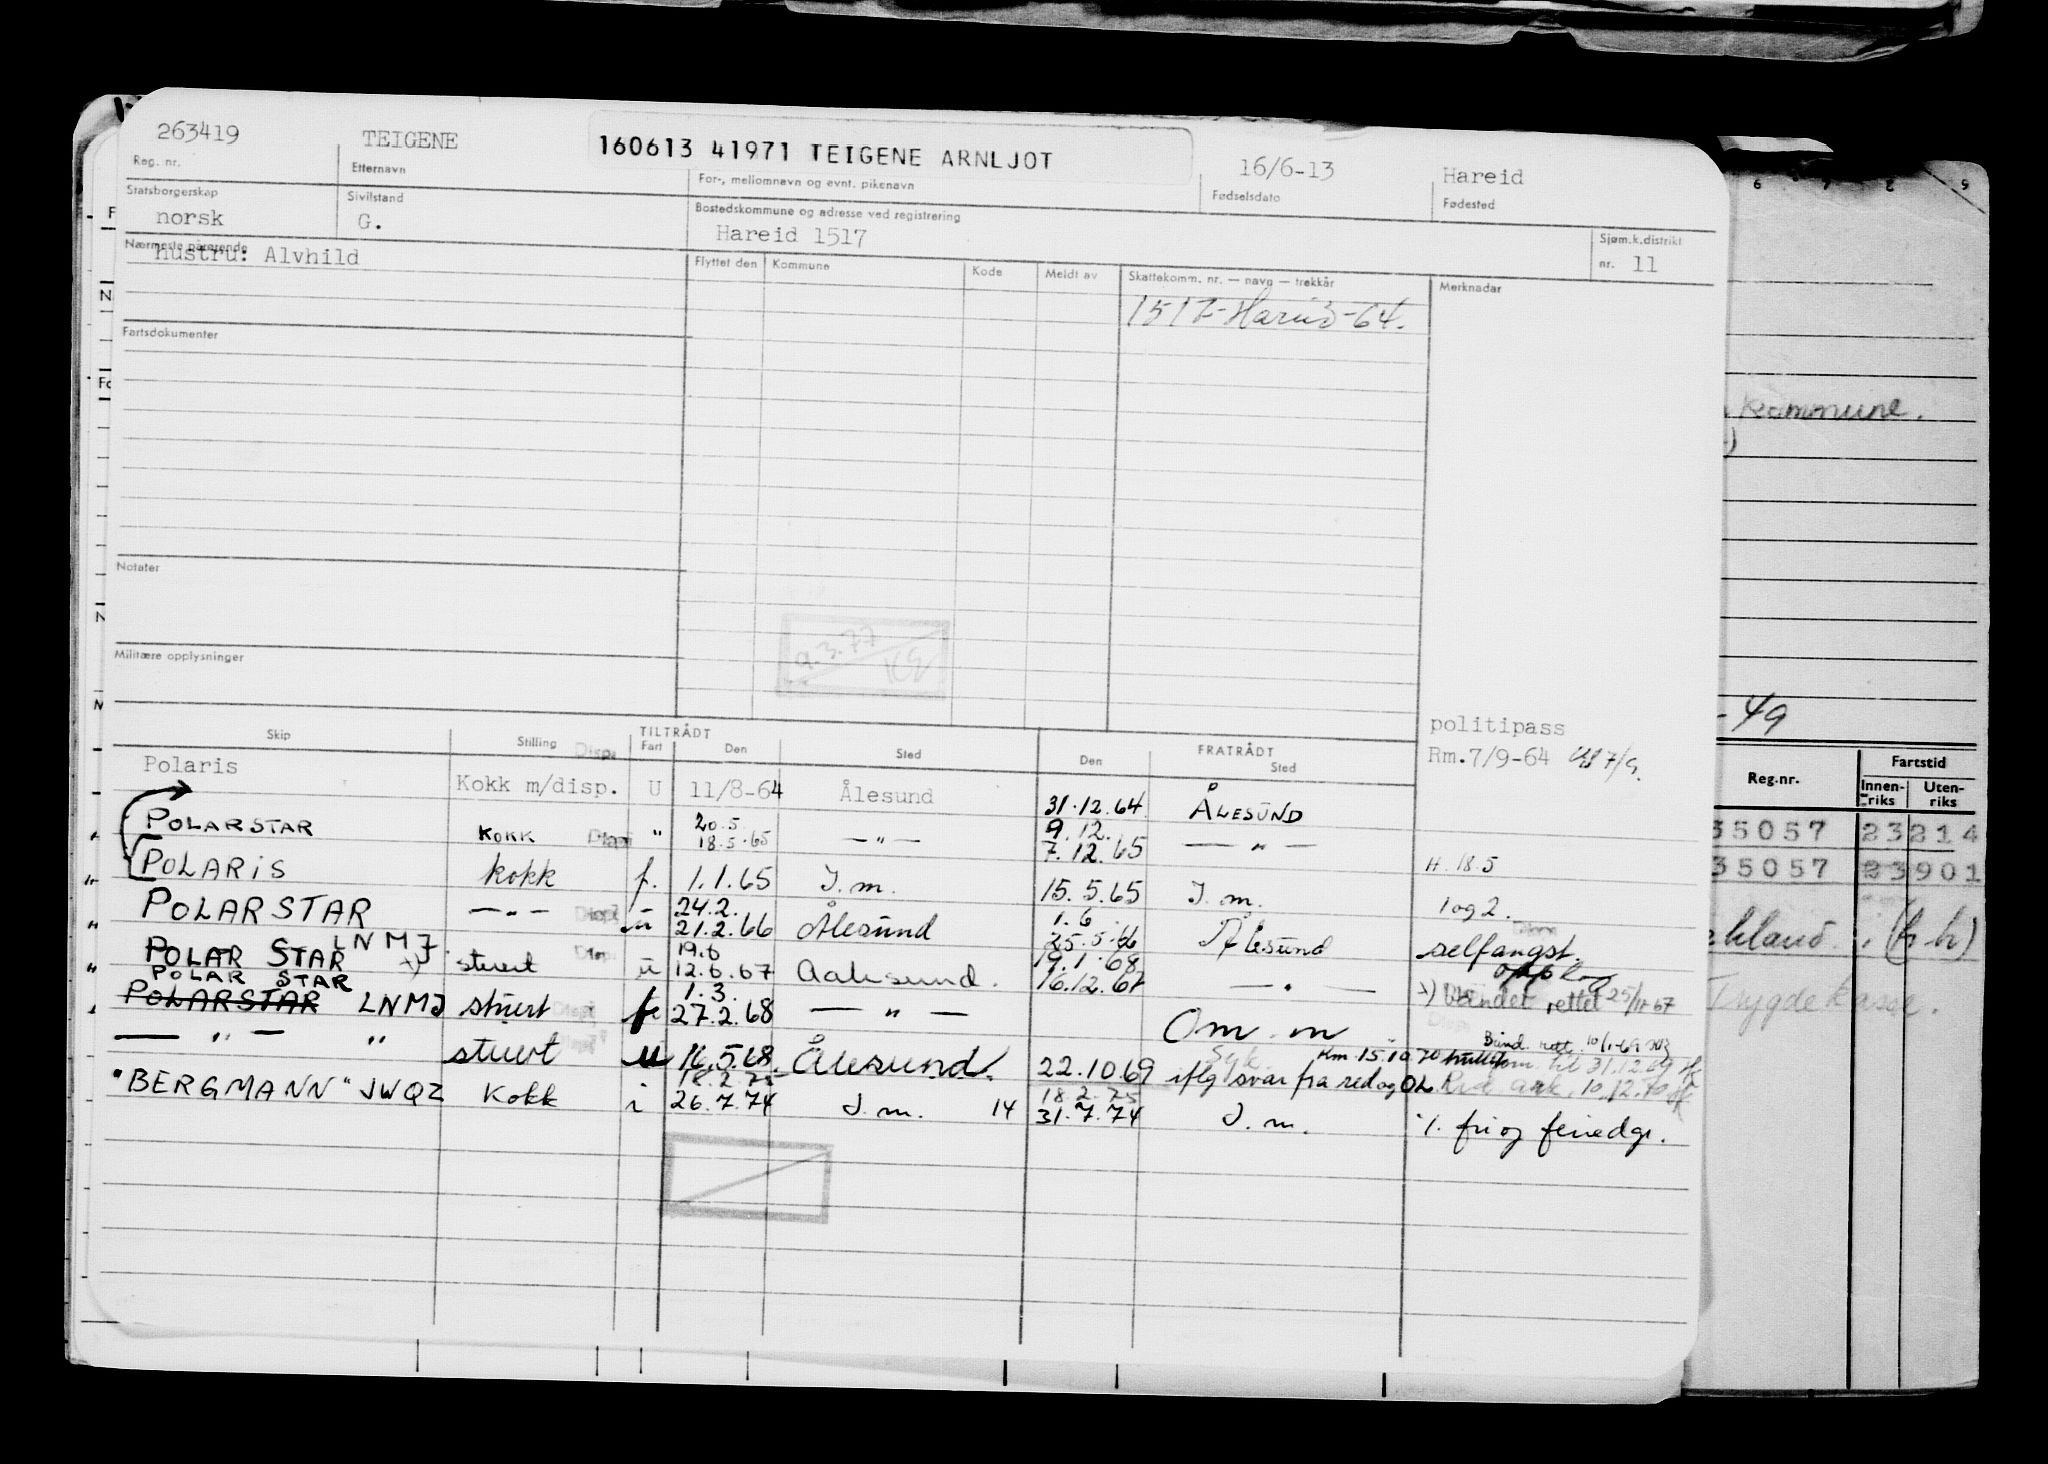 263419 TEIGENE 160613 41971 TEIGENE ARNLJOT 16/6-13 Hareid
Reg. nr. Etternavn For-, mellomnavn og evnt. pikenavn Fødselsdato Fødested
Statsborgerskap Sivilstand Bostedskommune og adresse ved registrering Sjøm.k.distrikt
norsk G. Hareid 1517 nr. 11
Nærmeste pårørende Flyttet den Kommune Kode Meldt av Skattekomm. nr. — navn — trekkår Merknadar
hustru: Alvhild
1517-Hareid-64.
Fartsdokumenter
Kommune.
Notater
Militære opplysninger
-49
politipass
Rm.7/9-64
Skip Stilling TILTRÅDT Fart Den Sted FRATRÅDT Den Sted
Reg.nr. Fartstid
Innen-riks Uten-riks
Polaris Kokk m/disp. U 11/8-64 Ålesund 31.12.64 ÅLESUND
35057 23214
POLARSTAR KOKK " 20.5. 18.5.65 — " — 9.12. 7.12.65 — " —
35057 23901
POLARIS kokk f. 1.1.65 I.m. 15.5.65 I.m. H. 18.5
POLARSTAR — " — 24.2. 21.2.66 Ålesund 1.6. 25.5.66 Ålesund 1 og 2. selfangst.
POLAR STAR LNMJ. stuert u 19.6 12.6.67 Aalesund. 19.1.68 16.12.67 — " — opplag
POLAR STAR
POLARSTAR LNMJ stuert f 1.3. 27.2.68 — " — Om. m rettet 25/11-67
Trygdekasse.
— " — " stuert u 16.5.68. Ålesund. 22.10.69 Syk. iflg svar fra red og OL Rm. 15.10.70 til 31.12.69
"BERGMANN" JWQZ Kokk i 18.2.75 26.7.74 I.m. 14 18.2.75 31.7.74 I.m. ·/. fri og feriedgr.